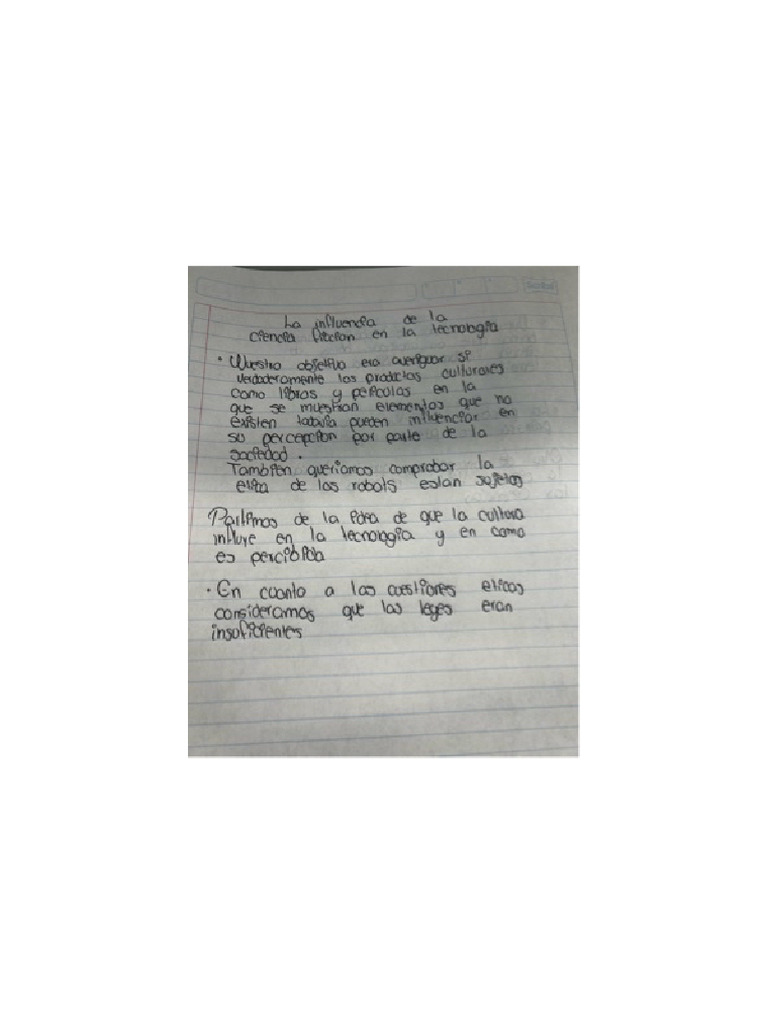 La influencia de la
ciencia ficcion en la tecnologia
• Nuestro objetivo era averiguar si
verdaderamente los productos culturales
como libros y peliculas en la
que se muestran elementos que no
existen todavia pueden influenciar en
su percepcion por parte de la
sociedad.
Tambien queriamos comprobar la
etica de los robots estan sujetos
Partimos de la idea de que la cultura
influye en la tecnologia y en como
es percibida
• En cuanto a las cuestiones eticas
consideramos que las leyes eran
insuficientes